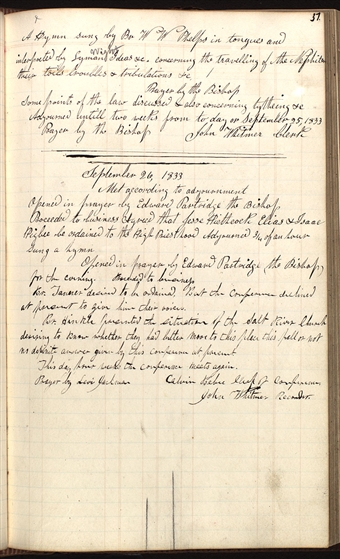 51
A Hymn sung by Br W W Phelps in tongues and
interpreted by Lyman Wight &c. concerning the travelling of the Nephites
their toils troubles & tribulations &c
Prayer by the Bishop
Some points of the law discussed & also concerning tything &c
Adjourned untill two weeks from to day or September 25, 1833
Prayer by the Bishop John Whitmer Clerk
September 26, 1833
Met according to adjournment
Opened in prayer by Edward Partridge the Bishop
Proceeded to business & agreed that Jesse Hitchcock Elias & Isaac
Higbee be ordained to the High Priesthood Adjourned 3/4 of an hour
Sung a hymn
Opened in prayer by Edward Partridge, the Bishop,
for the evening. to business
Br. Tanner desired to be ordained. But the Conference declined
at present to give him their voices.
Br. Hinkle presented the situation of the Salt River Church
desiring to know whether they had better move to this place this fall or not
no definite answer given by this conference at present
This day four weeks the conference meets again.
Prayer by Levi Jackman Calvin Beebe Clerk of Conference
John Whitmer Recorder